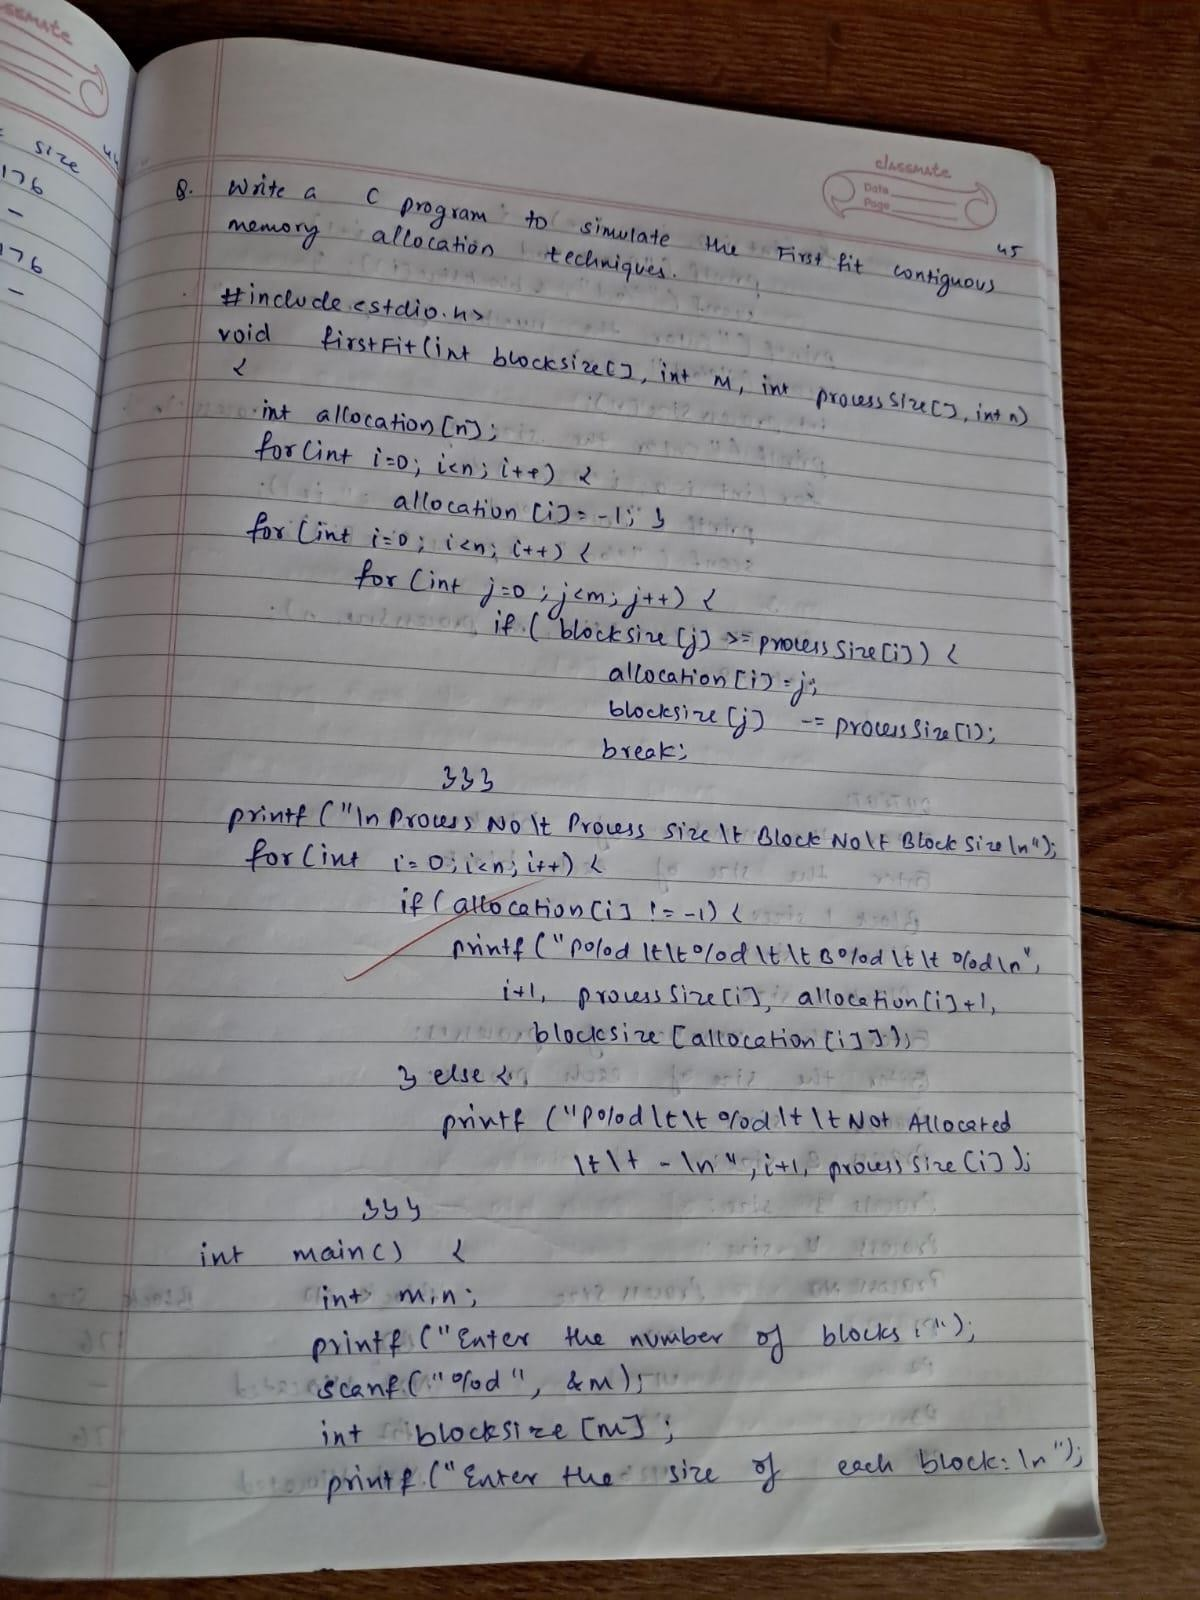 classmate
size
176
-
176
-
classmate
Date
Page
45
Q. Write a C program to simulate the First fit contiguous
memory allocation techniques.
#include<stdio.h>
void firstFit(int blocksize[], int m, int processSize[], int n)
{
int allocation[n];
for(int i=0; i<n; i++) {
allocation[i]=-1; }
for(int i=0; i<n; i++) {
for(int j=0; j<m; j++) {
if( blocksize[j] >= processSize[i]) {
allocation[i]=j;
blocksize[j] -= processSize[i];
break;
}}}
printf("\n Process No\t Process Size\t Block No\t Block Size\n");
for(int i=0; i<n; i++) {
if(allocation[i] != -1) {
printf("P%d\t\t%d\t\tB%d\t\t%d\n",
i+1, processSize[i], allocation[i]+1,
blocksize[allocation[i]]);
} else {
printf("P%d\t\t%d\t\tNot Allocated
\t\t-\n", i+1, processSize[i]);
}}}
int main() {
int m,n;
printf("Enter the number of blocks:");
scanf("%d", &m);
int blocksize[m];
printf("Enter the size of each block:\n");